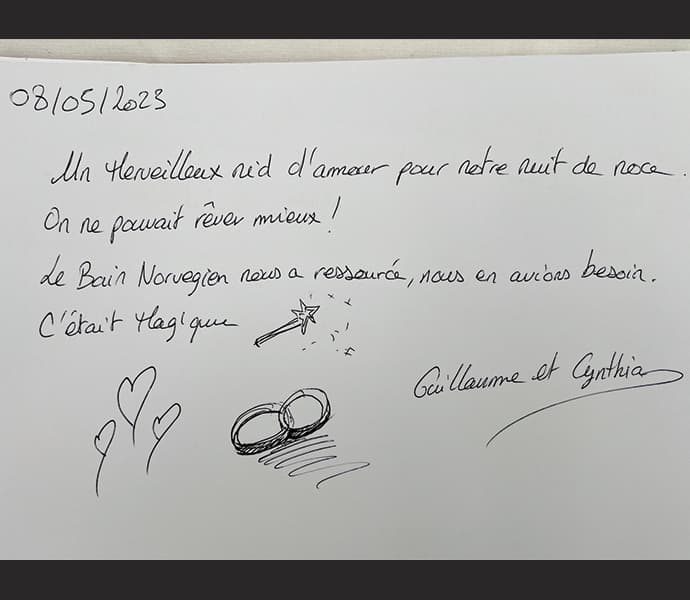 08/05/2023
Un Merveilleux nid d'amour pour notre nuit de noce.
On ne pouvait rêver mieux !
Le Bain Norvegien nous a ressourcé, nous en avions besoin.
C'était Magique
Guillaume et Cynthia